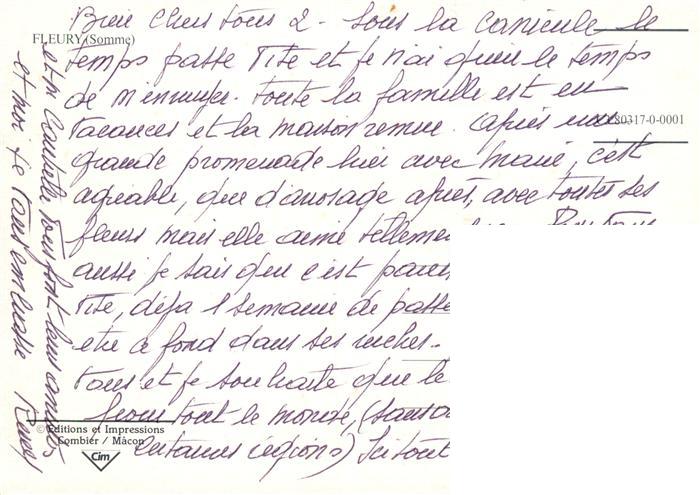 FLEURY (Somme)
Bien chers tous 2 - Sous la canicule le
temps passe vite et je n'ai guère le temps
de m'ennuyer. toute la famille est en
vacances et la maison remue. Après une
grande promenade hier avec Marie, c'est
agréable, que d'arrosage après, avec toutes ses
fleurs mais elle aime tellement
aussi je sais que c'est
vite, déjà 1 semaine de passé
être à fond dans ses ruches.
vous et je souhaite que le
pour tout le monde,
certaines régions) Ici tout
80317-0-0001
© Editions et Impressions
Combier / Mâcon
Cim
et Camille vous font leurs amitiés
et moi je vous embrasse